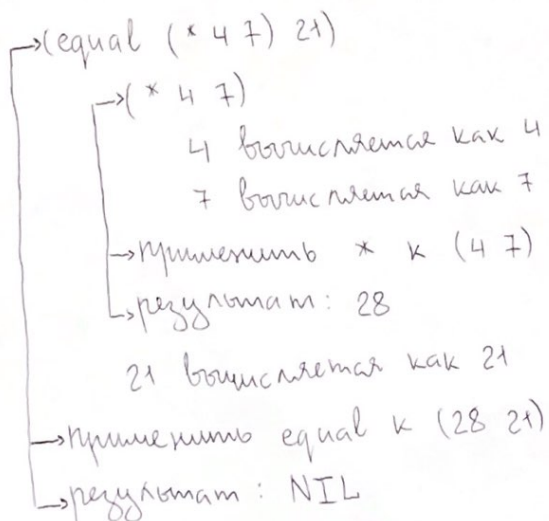 (equal (* 4 7) 21)
(* 4 7)
4 вычисляется как 4
7 вычисляется как 7
применить * к (4 7)
результат: 28
21 вычисляется как 21
применить equal к (28 21)
результат: NIL